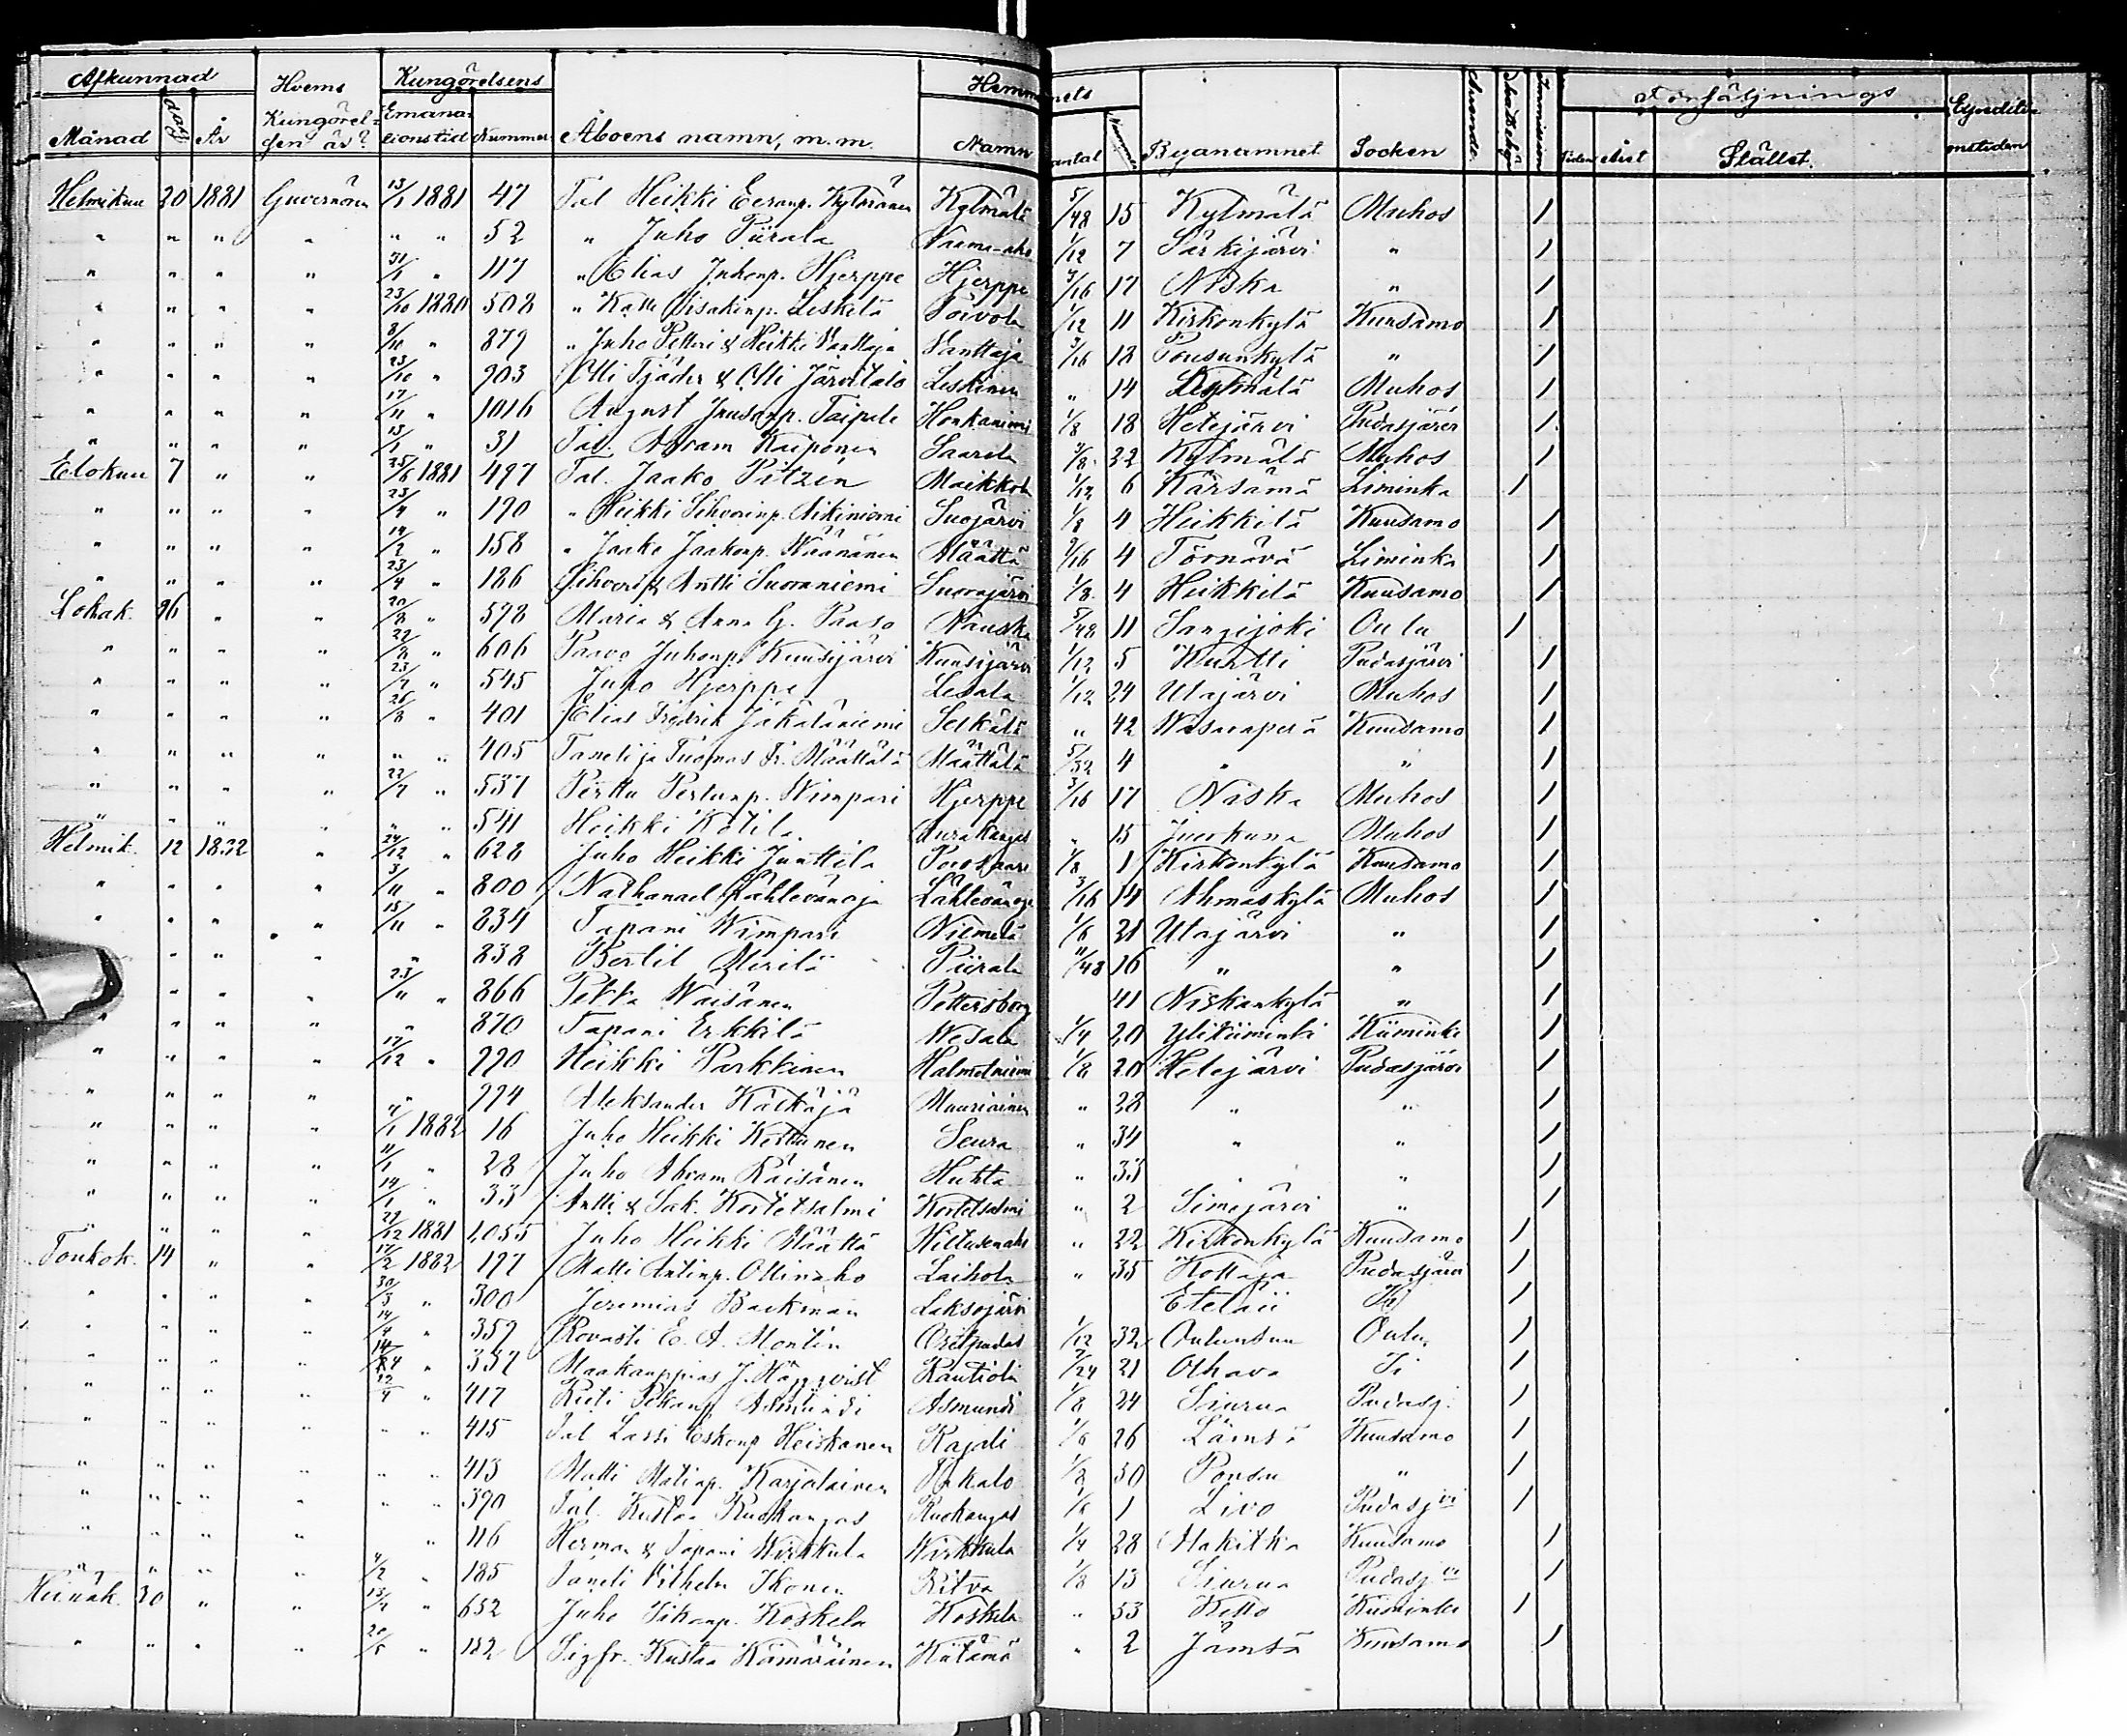 Afkunnad Hvems Kungörelsens Hemmanets Åurude Skatteköp Immission Försäljnings Expeditionstiden
Månad dag År Kungörelsen är? Emanationstid Nummer Åboens namn, m. m. Namn antal Nummer Byanamnet Socken Tiden Året Stället.
Helmikuu 20 1881 Guvernören 13/1 1881 47 Tal Heikki Eeranp. Kylmänen Kylmälä 5/48 15 Kylmälä Muhos /
" " " " " " 52 " Juho Piirala Vaama-aho 1/12 7 Särkijärvi " /
" " " " 31/1 " 117 " Elias Juhonp. Hjerppe Hjerppe 3/16 17 Niska " /
" " " " 23/10 1880 508 " Kalle Iisakinp. Leskelä Toivola 1/12 11 Kirkonkylä Kuusamo /
" " " " 8/10 " 879 " Juho Petteri & Heikki Vanttaja Vanttaja 3/16 12 Pousunkylä " /
" " " " 23/10 " 903 Olli Tjäder & Olli Järvitalo Leskinen " 14 Kylmälä Muhos /
" " " " 17/11 " 1016 August Juusonp. Taipale Honkaniemi 1/8 18 Hetejärvi Pudasjärvi /
" " " " 13/1 " 31 Tal. Abram Kaiponen Saarela 3/8 22 Kylmälä Muhos /
Elokuu 7 " " 25/6 1881 497 Tal. Jaako Pitzén Maikkola 1/12 6 Kärsämä Liminka /
" " " " 23/4 " 190 " Heikki Sihverinp. Aikiniemi Suojärvi 1/8 4 Heikkilä Kuusamo /
" " " " 14/2 " 158 " Jaako Jaakonp. Wäänänen Määttä 9/16 4 Törnävä Liminka /
" " " " 23/4 " 186 Sihveri & Antti Suoraniemi Suorajärvi 1/8 4 Heikkilä Kuusamo /
Lokak. 26 " " 20/8 " 578 Maria & Anna G. Paaso Nauska 5/48 11 Sangijoki Oulu /
" " " " 22/8 " 606 Paavo Juhonp. Kuusijärvi Kuusijärvi 1/12 5 Kurtti Pudasjärvi /
" " " " 23/7 " 545 Juho Hjerppe Lesala 1/12 24 Utajärvi Muhos /
" " " " 26/8 " 401 Elias Fridrik Jäkäläniemi Selkälä " 42 Wasaraperä Kuusamo /
" " " " " " 405 Taneli ja Tuomas Fr. Määttälä Määttälä 5/32 4 " " /
" " " " 22/7 " 537 Perttu Pertunp. Wimpari Hjerppe 3/16 17 Niska Muhos /
" " " " " " 541 Heikki Kotila Aurakangas " 15 Juorkuna Muhos /
Helmik. 12 1882 " 24/12 " 628 Juho Heikki Junttila Porovaara 1/8 1 Kirkonkylä Kuusamo /
" " " " 3/11 " 800 Nathanael Lähtevänoja Lähtevänoja 3/16 14 Ahmaskylä Muhos /
" " " " 15/11 " 834 Tapani Wimpari Niemelä 1/6 21 Utajärvi " /
" " " " 838 Bertil Merilä Piirala 11/48 16 " " /
" " " 23/11 " 866 Pekka Wäisänen Pettersborg 41 Niskankylä " /
" " " " " 870 Tapani Erkkilä Wesala 1/4 20 Ylikiiminki Kiiminki /
" " " " 17/12 " 990 Heikki Parkkinen Halmetniemi 1/8 20 Hetejärvi Pudasjärvi /
" " " " " 994 Aleksander Kälkäjä Muuriainen " 28 " " /
" " " " 4/1 1882 16 Juho Heikki Kerttunen Seura " 34 " " /
" " " " 11/1 " 28 Juho Abram Räisänen Huhta " 33 " " /
" " " " 14/1 " 33 Antti & Sak. Kortetsalmi Kortetsalmi " 2 Simejärvi " /
" " " " 27/12 1881 1,055 Juho Heikki Määttä Hiltusenaho " 22 Kirkonkylä Kuusamo /
Toukok. 14 " " 17/2 1882 197 Matti Antinp. Ollinaho Laihola " 35 Kollaja Pudasjärvi /
" " " " 30/3 " 300 Jeremias Backman Laksojärvi Eteläii Ii /
" " " " 14/4 " 359 Rovasti E. A. Montin Oritpudas 1/12 32 Oulunsuu Oulu /
" " " " 14/4 " 352 Maakauppias J. Häggqvist Rautiola 7/24 21 Olhava Ii /
" " " " 12/4 " 417 Pieti Pekanp Asmundi Asmundi 1/8 24 Siurua Pudasj. /
" " " " " " 415 Tal Lassi Eskonp Heiskanen Rajali 1/6 26 Lämsä Kuusamo /
" " " " " " 413 Matti Matinp. Karjalainen Pakalo 1/2 30 Pousu " /
" " " " " " 390 Tal. Kustaa Ruokangas Ruokangas 1/6 1 Livo Pudasjvi /
" " " " " 116 Herman & Tapani Wirkkula Wirkkula 1/4 28 Alakitka Kuusamo /
" " " " 4/2 " 185 Taneli Vilhelm Ikonen Ritva 1/8 13 Siurua Pudasjvi /
Heinäk. 30 " " 13/7 " 652 Juho Iikanp. Koskela Koskela " 53 Kello Kiiminki /
" " " " 20/5 " 182 Sigfr. Kustaa Kämäräinen Kiilämö " 2 Jämsä Kuusamo /